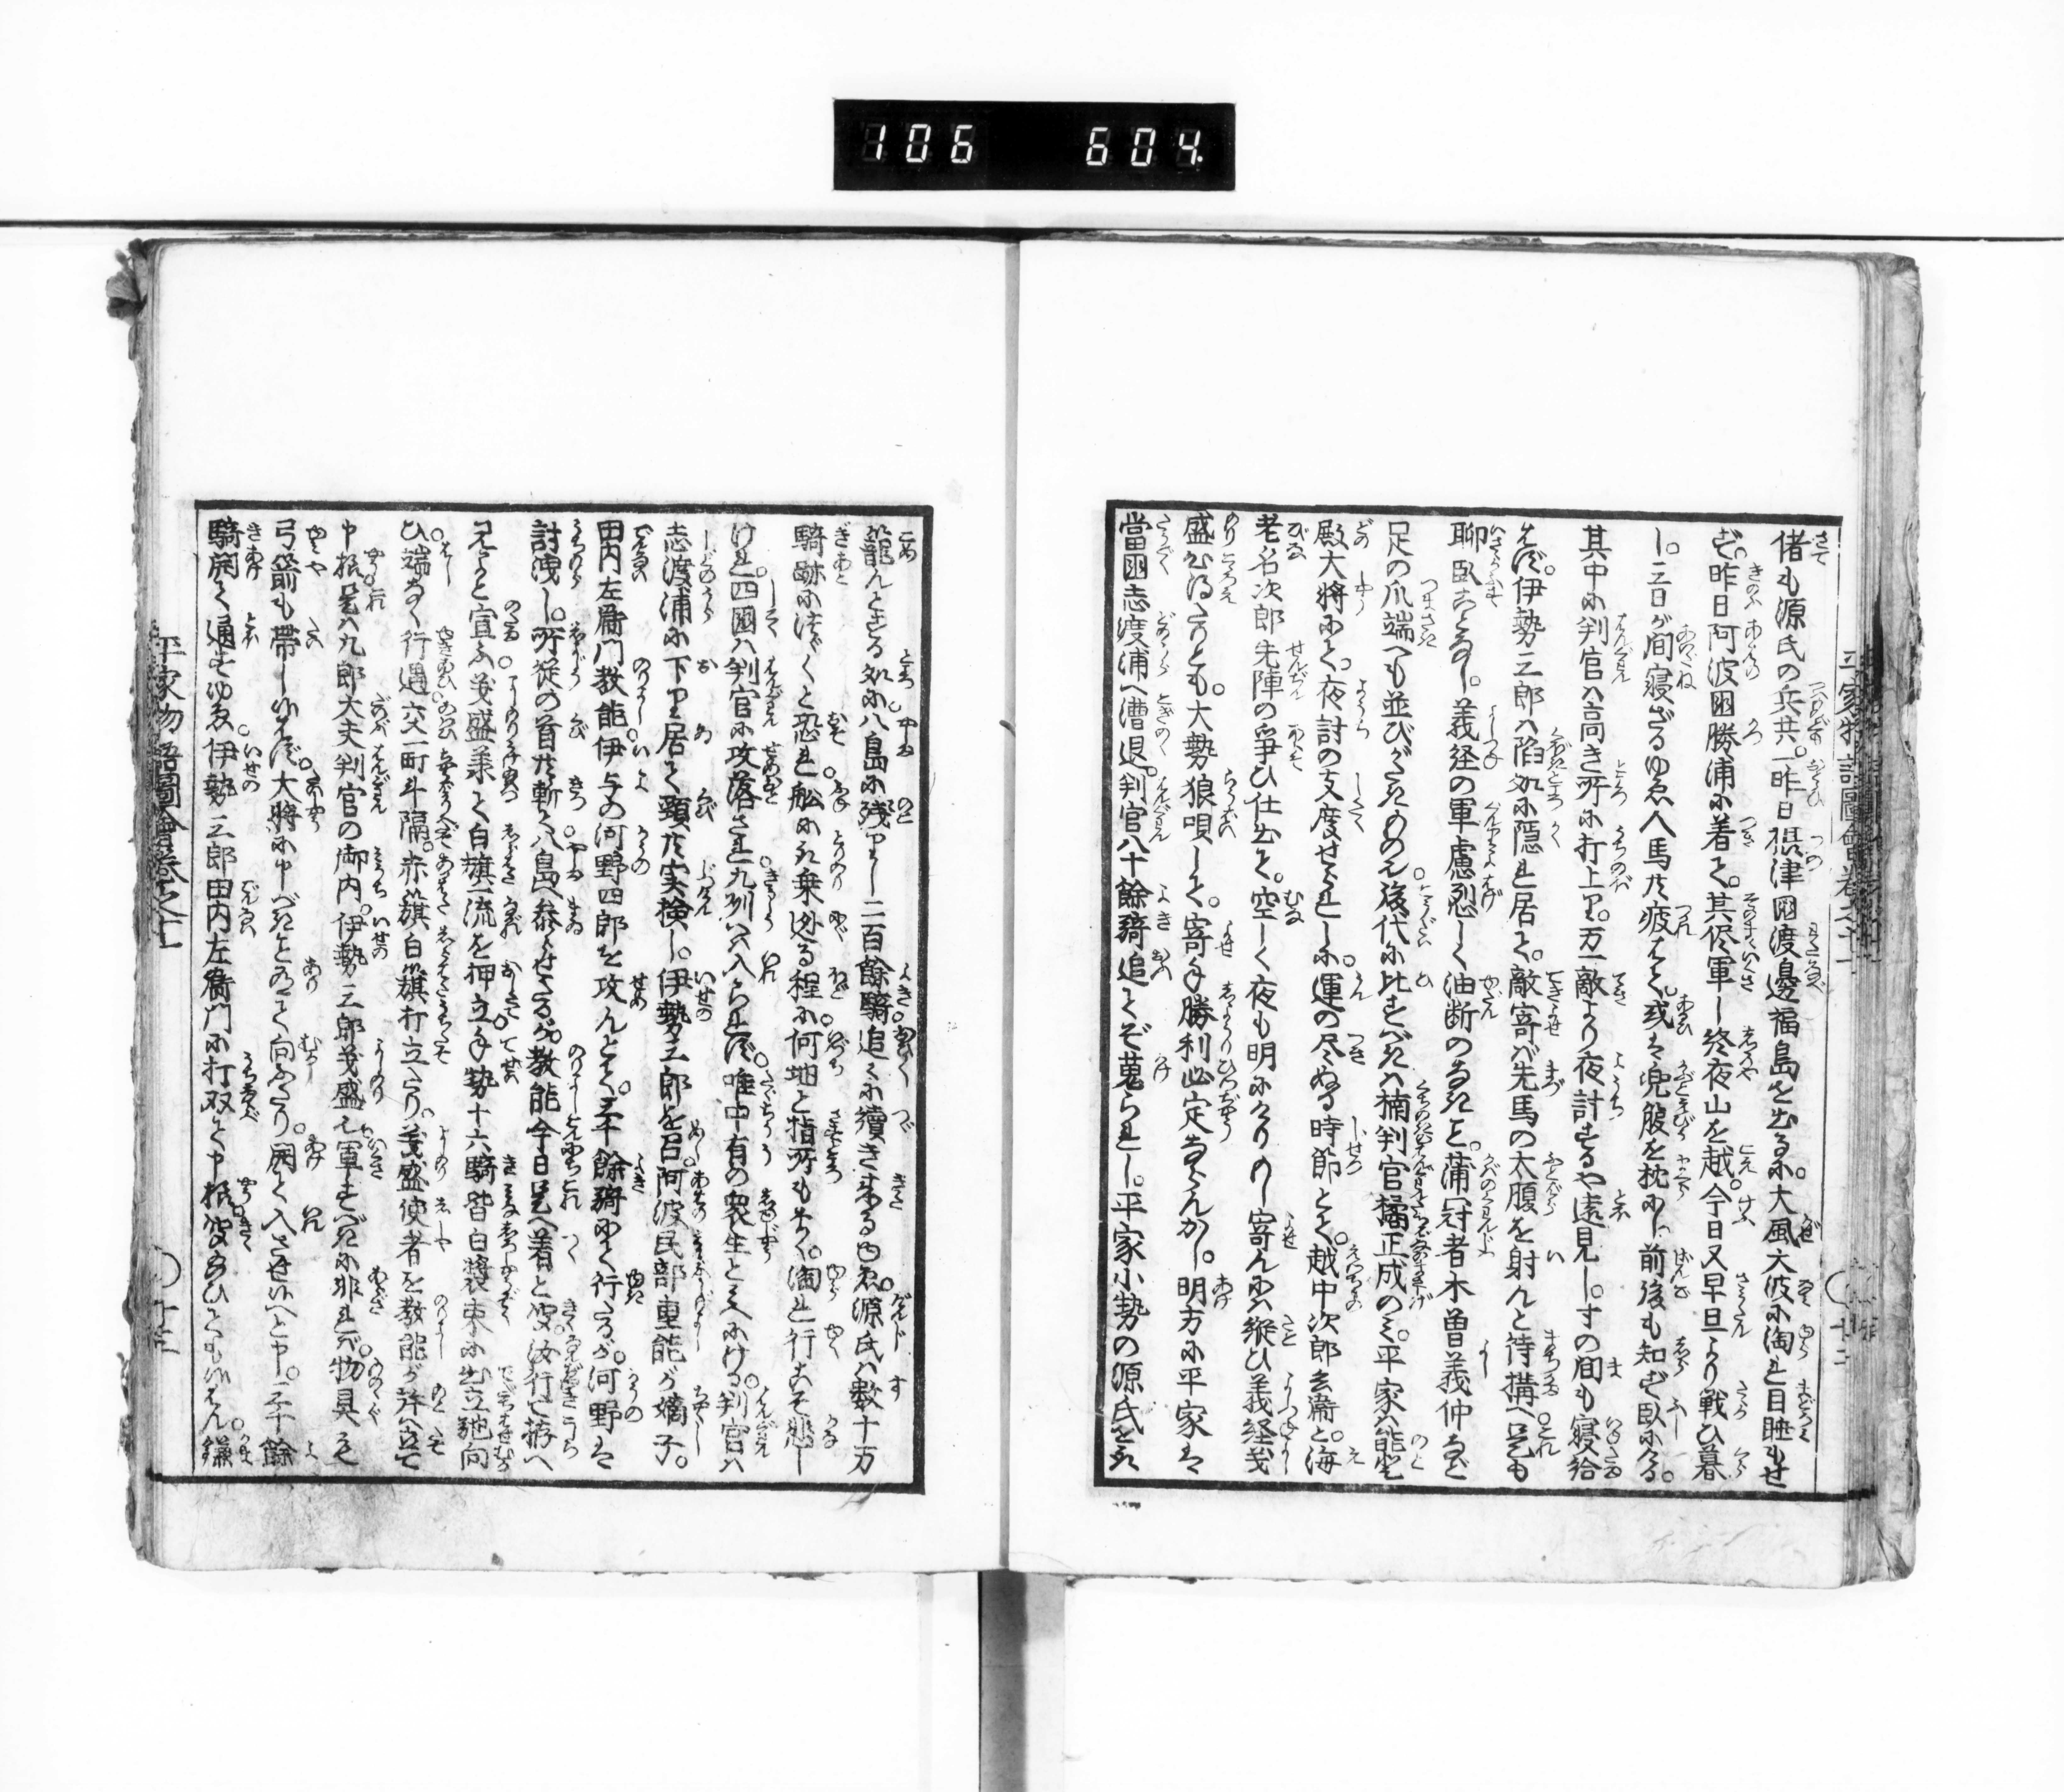 106 604
偖も源氏の兵共。一昨日摂津国渡邊福島を出るに。大風大波に淘れ目睡もせ
ず。昨日阿波国勝浦に着て。其侭軍し終夜山を越。今日又早旦より戦ひ暮
し。三日が間寝ざるゆゑ人馬共疲はて。或は兜腹を枕にし前後も知ず臥にける。
其中に判官は高き所に打上り。万一敵より夜討するや遠見し。寸の間も寝給
はず。伊勢三郎は陷処に隠れ居て。敵寄ば先馬の太腹を射んと待構へ是も
聊臥ことなし。義経の軍慮烈しく油断のなきと。蒲冠者木曽義仲など
足の爪端へも並びがたきのみ。後代に比すべきは楠判官橘正成のみ。平家は能登
殿大将にて。夜討の支度せられしに。運の尽ぬる時節とて。越中次郎兵衛と。海
老名次郎先陣の争ひ仕出て。空しく夜も明にけり。寄んには縦ひ義経義
盛心得たりとも。大勢狼唄して。寄手勝利必定なるべし。明方に平家は
當国志渡浦へ漕退。判官八十餘騎追てぞ蒐られし。平家小勢の源氏を
籠んとする処に。八島に残りし二百餘騎追々に續き来るゆゑ。源氏は数十万
騎跡につゞくと恐れ舩に乗迯る程に。何地と指所もなく。淘れ行こそ悲し
けれ。四國は判官に攻落され。九州へは入られず。唯中有の衆生と見へにける。判官は
志渡浦に下り居て頸共実検し。伊勢三郎を召。阿波民部重能が嫡子。
田内左衛門教能。伊与の河野四郎を攻んとて。三千餘騎にて行たるが。河野は
討洩し。所従の首共斬て八島へ参らせたるが。教能今日是へ着と。汝行て拵へ
見よと宣ふ。義盛承て白旗一流を押立。手勢十六騎皆白装束に出立馳向
ひ。端なく行遇。六一町斗隔。赤籏白籏打立たり。義盛使者を教能が許へ立て
申様。是は九郎大夫判官の御内。伊勢三郎義盛也。軍すべきに非れば。物具も
弓箭も帯し候はず。大将に申べきことありて向ふたり。開て入させ候へと申。三千餘
騎開て通すゆゑ。伊勢三郎田内左衛門に打双て申様。
平家物語圖會巻之十一
平家物語圖會巻之十一